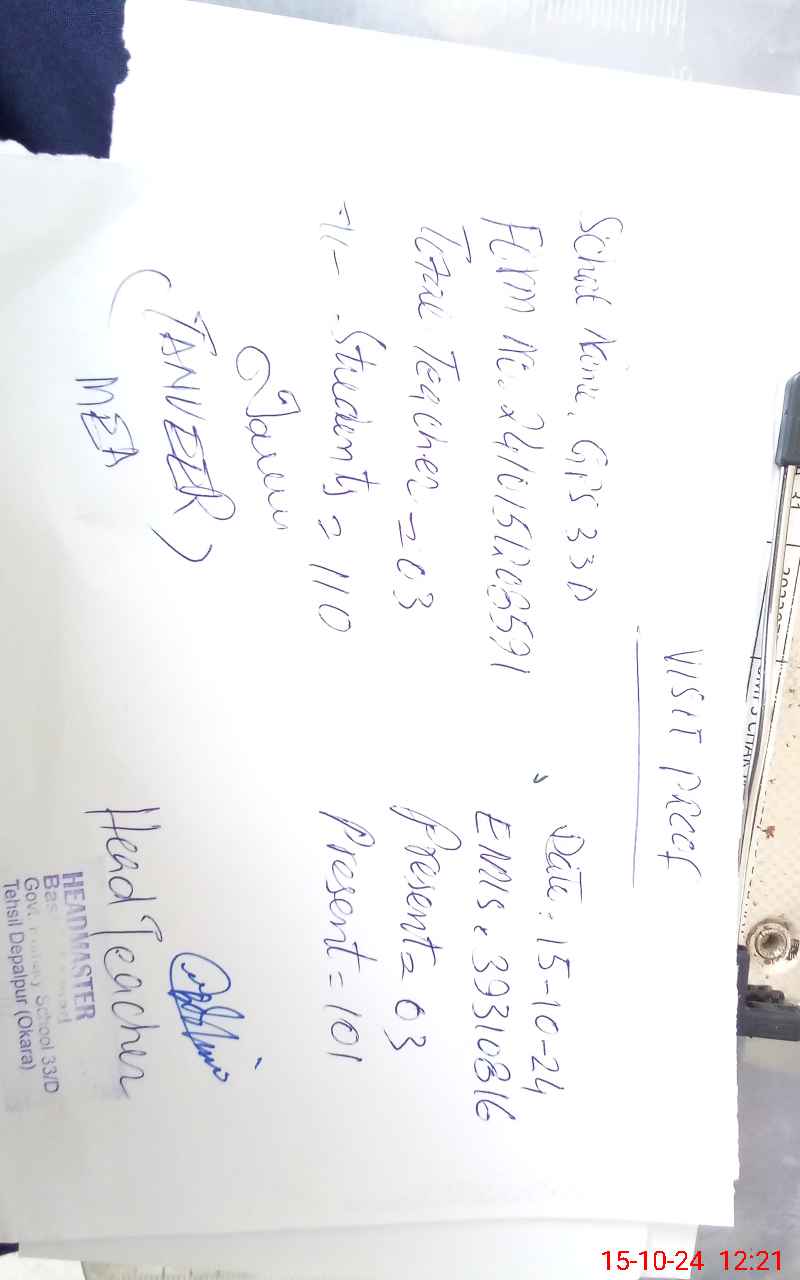 VISIT PROOF
School Name. GPS 33D
Date: 15-10-24
Form No. 241015120B591
EMIS. 39310816
Total Teacher = 03
Present = 03
-11- Students = 110
Present = 101
(TANVEER)
MEA
Head Teacher
HEADMASTER
School 33/D
Tehsil Depalpur (Okara)
15-10-24 12:21